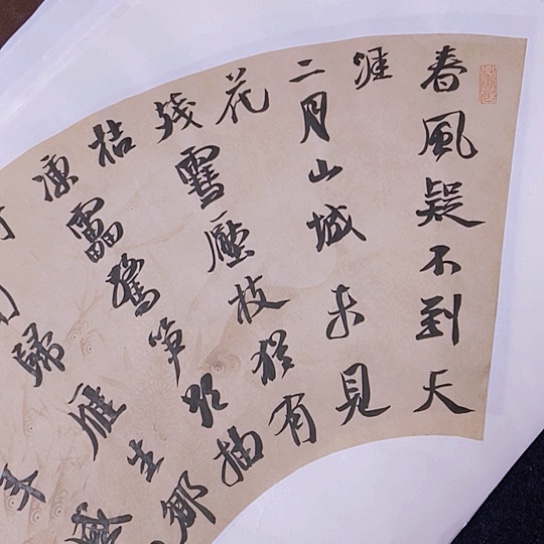 春風疑不到天
涯
二月山城未見
花
殘雪壓枝猶有
桔
凍雷驚笋欲抽
歸雁生鄉
年感